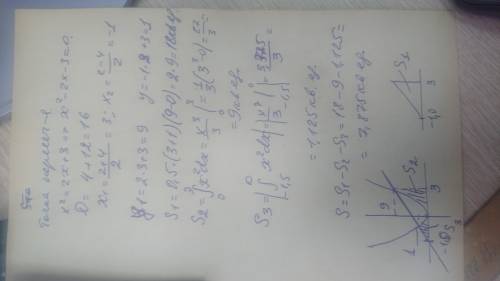 Точка пересеч-я
x²=2x+3 => x²-2x-3=0.
D=4+12=16
x₁=(2+4)/2=3; x₂=(2-4)/2=-1
y1=2·3+3=9 y=-1·2+3=1
S1=0,5·(3+1)(9-0)=2·9=18кв.ед
S2=∫₀³x²dx=x³/3|₀³=1/3(3³-0)=27/3
=9кв.ед.
S3=|∫x²dx|=|x³/3|
=1,125кв.ед.
S=S1-S2-S3=18-9-1,125=
=7,875кв.ед.
9
1
S2
3
S3
S1
-1,0 3